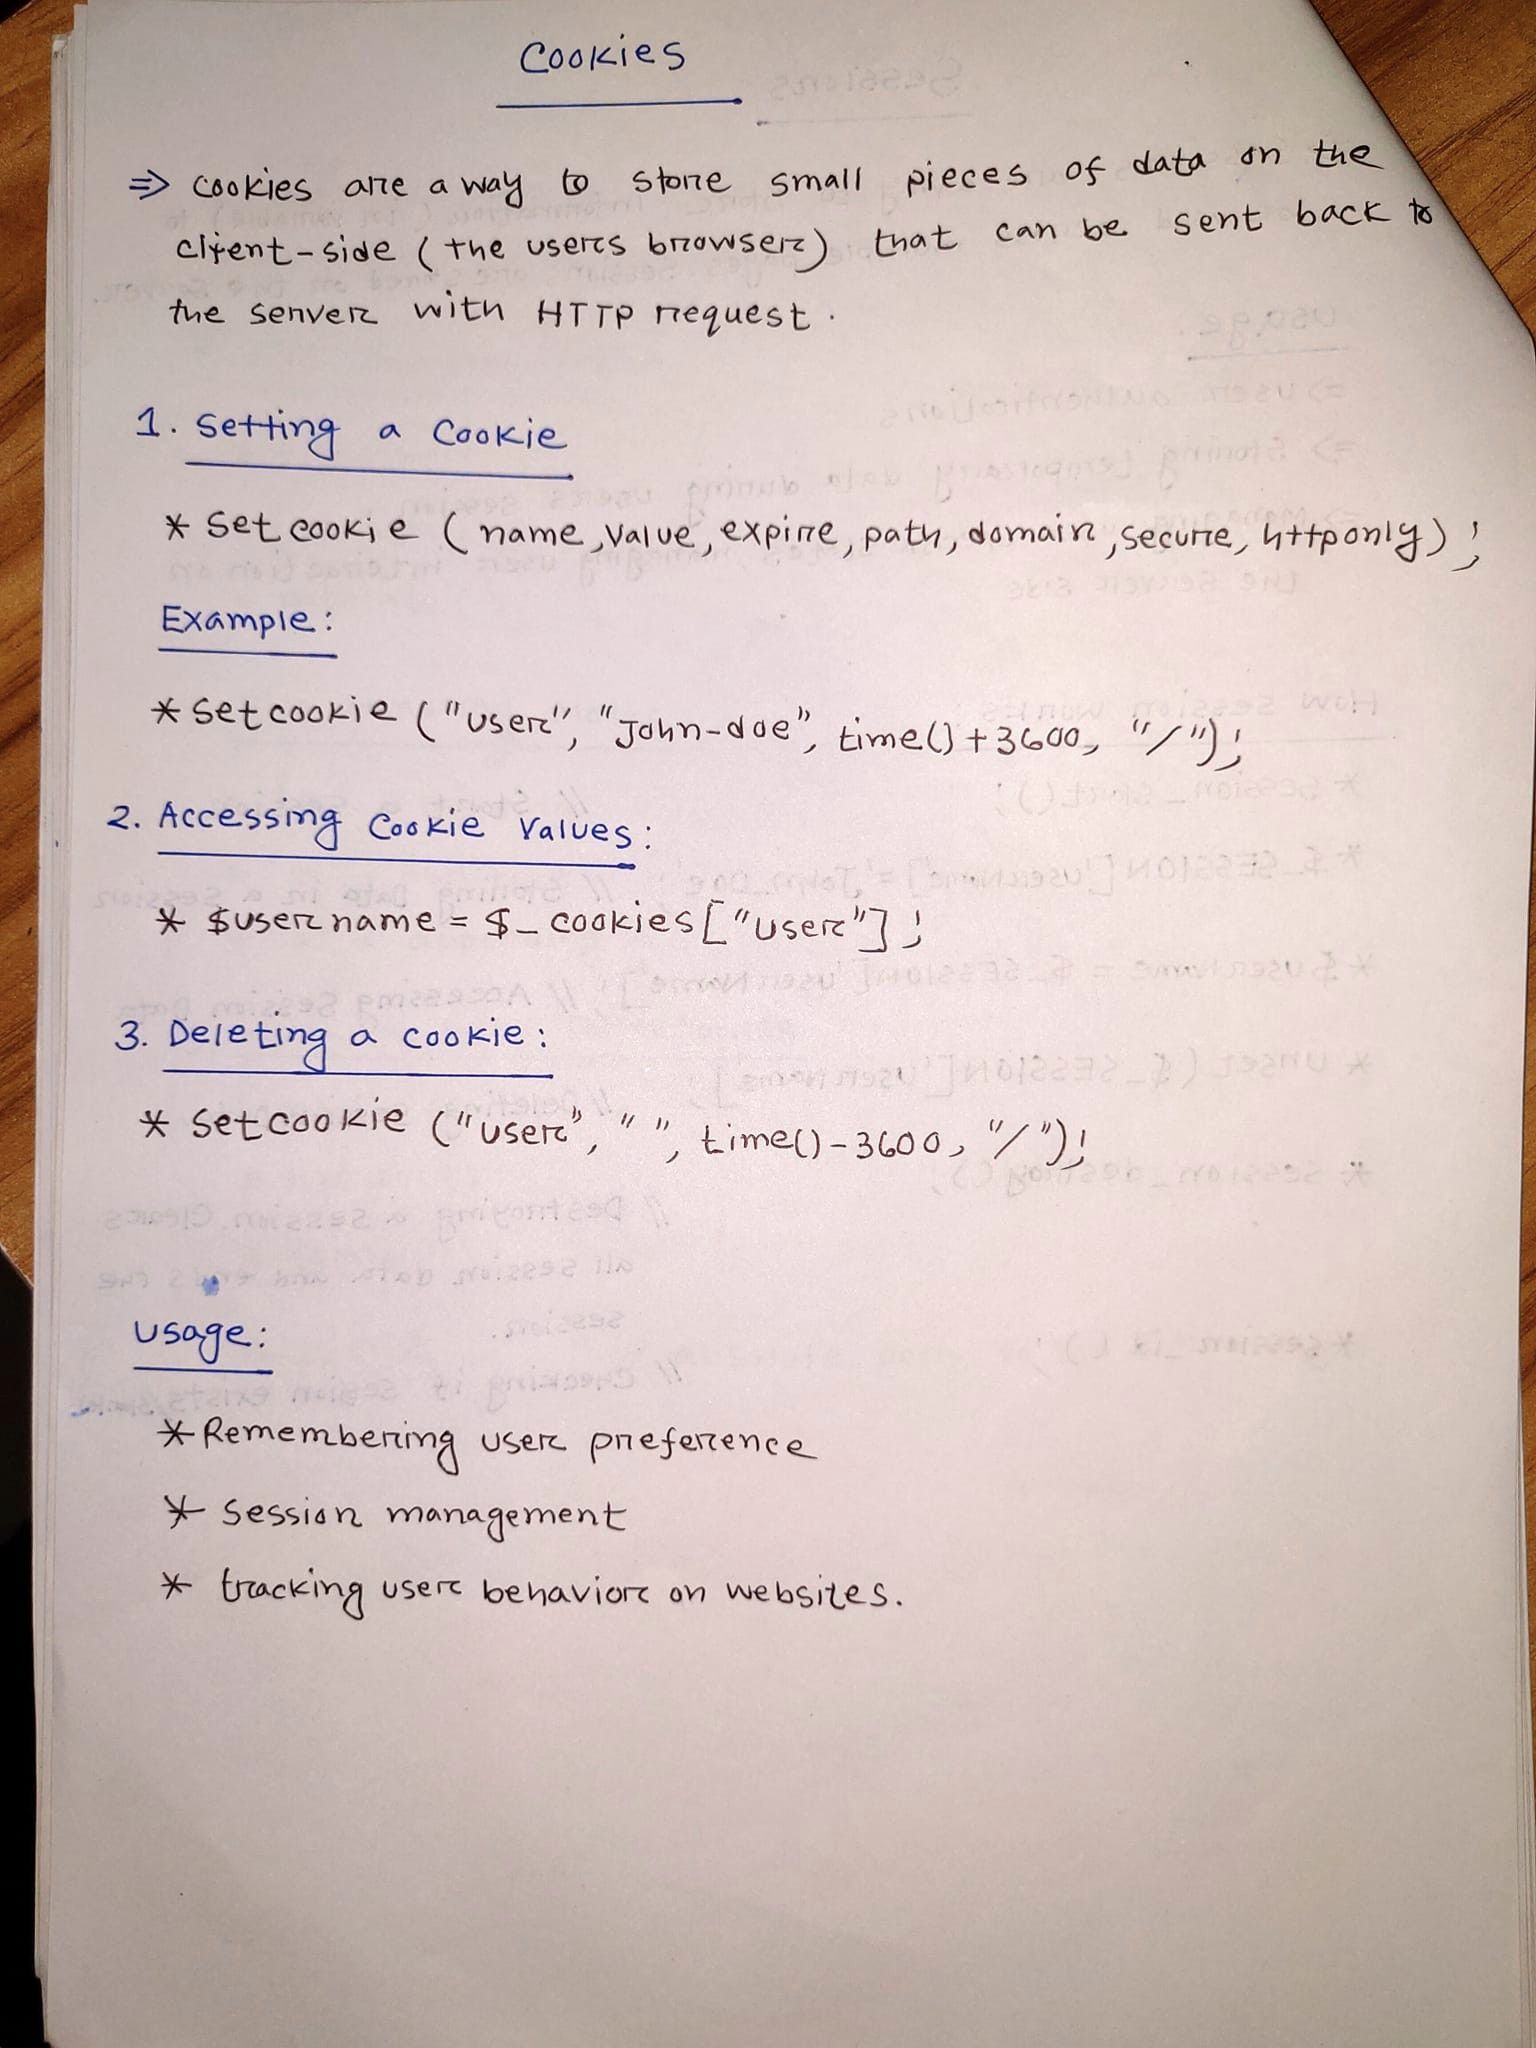 Cookies
⇒ Cookies are a way to store small pieces of data on the
client-side (the users browser) that can be sent back to
the server with HTTP request.
1. Setting a Cookie
* Setcookie (name, value, expire, path, domain, secure, httponly);
Example:
* Setcookie ("user", "John-doe", time()+3600, "/");
2. Accessing Cookie Values:
* $username = $_cookies["user"];
3. Deleting a cookie:
* Setcookie ("user", " ", time()-3600, "/");
Usage:
* Remembering user preference
* Session management
* tracking user behavior on websites.